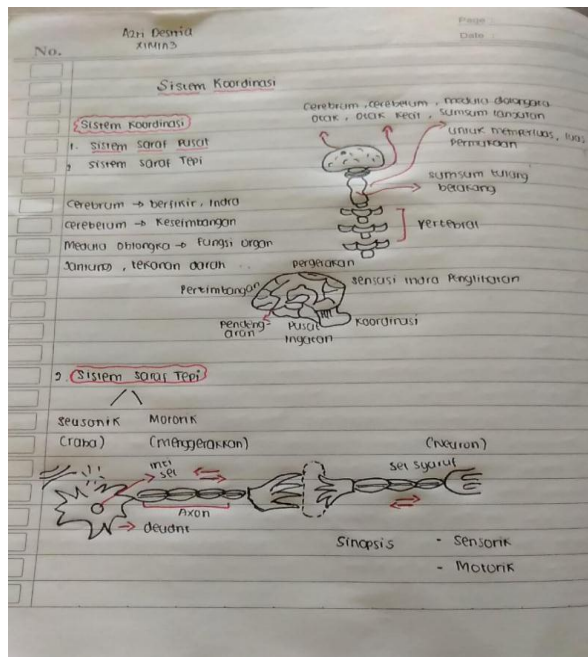 Azri Desnia
XIMIA3
Page :
Date :
No.
Sistem Koordinasi
Sistem Koordinasi
1. Sistem saraf pusat
2 sistem saraf Tepi
Cerebrum → berfikir, indra
cerebelum → Keseimbangan
Medula oblongka → Fungsi organ
Jantung, tekanan darah
cerebrum, cerebelum, medula
otak, otak kecil, sumsum lanjutan
untuk memperluas, luas
permukaan
sumsum tulang
belakang
vertebral
pergerakan
Pertimbangan
sensasi indra Penglihatan
Pendeng-
aran
Pusat
Ingatan
Koordinasi
2. Sistem saraf Tepi
seusonik Motorik
(raba) (menggerakkan)
(Neuron)
inti
sel
sel syaruf
Axon
deudnt
Sinopsis - Sensorik
- Motorik